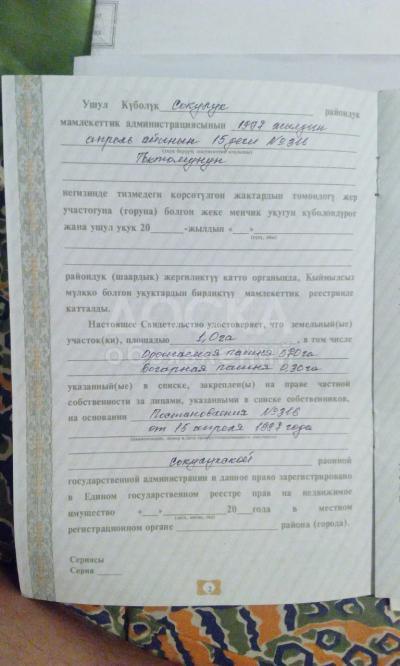 Ушул Күбөлүк Сокулук райондук
мамлекеттик администрациясынын 1997 жылдын
апрель айынын 15 деги №316
Токтомунун
негизинде тизмедеги көрсөтүлгөн жактардын төмөндөгү жер
участогуна (торуна) болгон жеке менчик укугун күбөлөндүрөт
жана ушул укук 20 -жылдын « »
(күнү, айы)
райондук (шаардык) жергиликтүү катто органында, Кыймылсыз
мүлккө болгон укуктардын бирдиктүү мамлекеттик реестринде
катталды.
Настоящее Свидетельство удостоверяет, что земельный(ые)
участок(ки), площадью 1,0 га , в том числе
Орошаемая пашня 0,70 га
богарная пашня 0,30 га
указанный(ые) в списке, закреплен(ы) на праве частной
собственности за лицами, указанными в списке собственников,
на основании Постановления №316
от 15 апреля 1997 года
Сокулукской районной
государственной администрации и данное право зарегистрировано
в Едином государственном реестре прав на недвижимое
имущество « » 20 года в местном
(число, месяц, год)
регистрационном органе района (города).
Сериясы
Серия
2
ДОСКА
объявлений